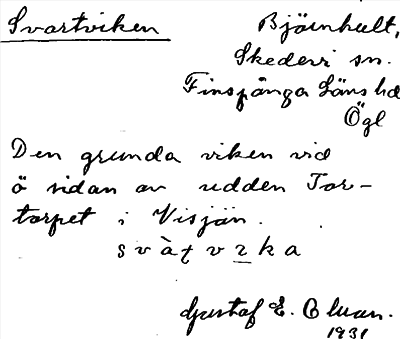 Svartviken
Björnhult,
Skedevi sn.
Finspånga Läns hd
Ögl
Den grunda viken vid
ö sidan av udden Tor-
torpet i Visjön.
svàtvıka
Gustaf E. Ohman.
1931